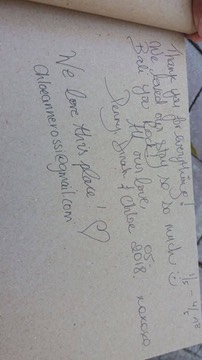 Thank you for everything!
We loved our stay so so much :)
Bali you Rock
All our love,
& Chloe 2018. xoxoxo
We love this place! ♡
chloeannerossi@gmail.com